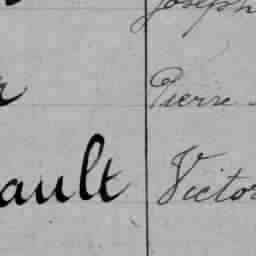 Joseph
r Pierre
ault Victor